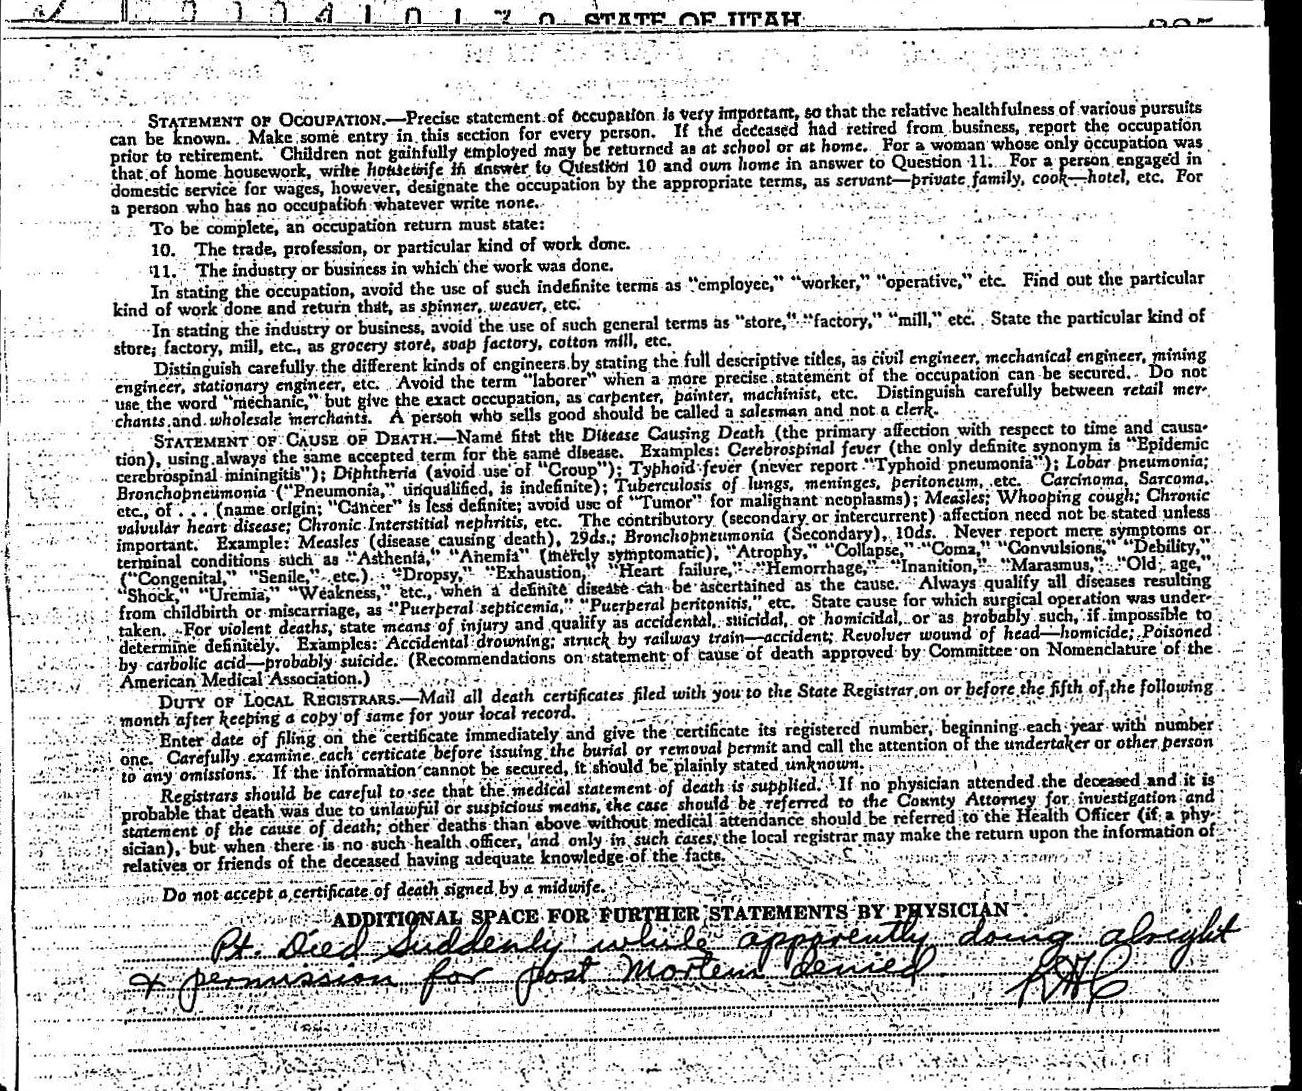 STATE OF UTAH
STATEMENT OF OCCUPATION.—Precise statement of occupation is very important, so that the relative healthfulness of various pursuits
can be known. Make some entry in this section for every person. If the deceased had retired from business, report the occupation
prior to retirement. Children not gainfully employed may be returned as at school or at home. For a woman whose only occupation was
that of home housework, write housewife in answer to Question 10 and own home in answer to Question 11. For a person engaged in
domestic service for wages, however, designate the occupation by the appropriate terms, as servant—private family, cook—hotel, etc. For
a person who has no occupation whatever write none.
To be complete, an occupation return must state:
10. The trade, profession, or particular kind of work done.
11. The industry or business in which the work was done.
In stating the occupation, avoid the use of such indefinite terms as "employee," "worker," "operative," etc. Find out the particular
kind of work done and return that, as spinner, weaver, etc.
In stating the industry or business, avoid the use of such general terms as "store," "factory," "mill," etc. State the particular kind of
store, factory, mill, etc., as grocery store, soap factory, cotton mill, etc.
Distinguish carefully the different kinds of engineers by stating the full descriptive titles, as civil engineer, mechanical engineer, mining
engineer, stationary engineer, etc. Avoid the term "laborer" when a more precise statement of the occupation can be secured. Do not
use the word "mechanic," but give the exact occupation, as carpenter, painter, machinist, etc. Distinguish carefully between retail mer-
chants and wholesale merchants. A person who sells good should be called a salesman and not a clerk.
STATEMENT OF CAUSE OF DEATH.—Name first the Disease Causing Death (the primary affection with respect to time and causa-
tion), using always the same accepted term for the same disease. Examples: Cerebrospinal fever (the only definite synonym is "Epidemic
cerebrospinal miningitis"); Diphtheria (avoid use of "Croup"); Typhoid fever (never report "Typhoid pneumonia"); Lobar pneumonia;
Bronchopneumonia ("Pneumonia," unqualified, is indefinite); Tuberculosis of lungs, meninges, peritoneum, etc. Carcinoma, Sarcoma,
etc., of . . . (name origin; "Cancer" is less definite; avoid use of "Tumor" for malignant neoplasms); Measles; Whooping cough; Chronic
valvular heart disease; Chronic Interstitial nephritis, etc. The contributory (secondary or intercurrent) affection need not be stated unless
important. Example: Measles (disease causing death), 29ds.; Bronchopneumonia (Secondary), 10ds. Never report mere symptoms or
terminal conditions such as "Asthenia," "Anemia" (merely symptomatic), "Atrophy," "Collapse," "Coma," "Convulsions," "Debility,"
("Congenital," "Senile," etc.) "Dropsy," "Exhaustion," "Heart failure," "Hemorrhage," "Inanition," "Marasmus," "Old age,"
"Shock," "Uremia," "Weakness," etc., when a definite disease can be ascertained as the cause. Always qualify all diseases resulting
from childbirth or miscarriage, as "Puerperal septicemia," "Puerperal peritonitis," etc. State cause for which surgical operation was under-
taken. For violent deaths, state means of injury and qualify as accidental, suicidal, or homicidal, or as probably such, if impossible to
determine definitely. Examples: Accidental drowning; struck by railway train—accident; Revolver wound of head—homicide; Poisoned
by carbolic acid—probably suicide. (Recommendations on statement of cause of death approved by Committee on Nomenclature of the
American Medical Association.)
DUTY OF LOCAL REGISTRARS.—Mail all death certificates filed with you to the State Registrar on or before the fifth of the following
month after keeping a copy of same for your local record.
Enter date of filing on the certificate immediately and give the certificate its registered number, beginning each year with number
one. Carefully examine each certicate before issuing the burial or removal permit and call the attention of the undertaker or other person
to any omissions. If the information cannot be secured, it should be plainly stated unknown.
Registrars should be careful to see that the medical statement of death is supplied. If no physician attended the deceased and it is
probable that death was due to unlawful or suspicious means, the case should be referred to the County Attorney for investigation and
statement of the cause of death; other deaths than above without medical attendance should be referred to the Health Officer (if a phy-
sician), but when there is no such health officer, and only in such cases, the local registrar may make the return upon the information of
relatives or friends of the deceased having adequate knowledge of the facts.
Do not accept a certificate of death signed by a midwife.
ADDITIONAL SPACE FOR FURTHER STATEMENTS BY PHYSICIAN
Pt. Died Suddenly while apparently doing alright
& permission for post Mortem denied. RHC